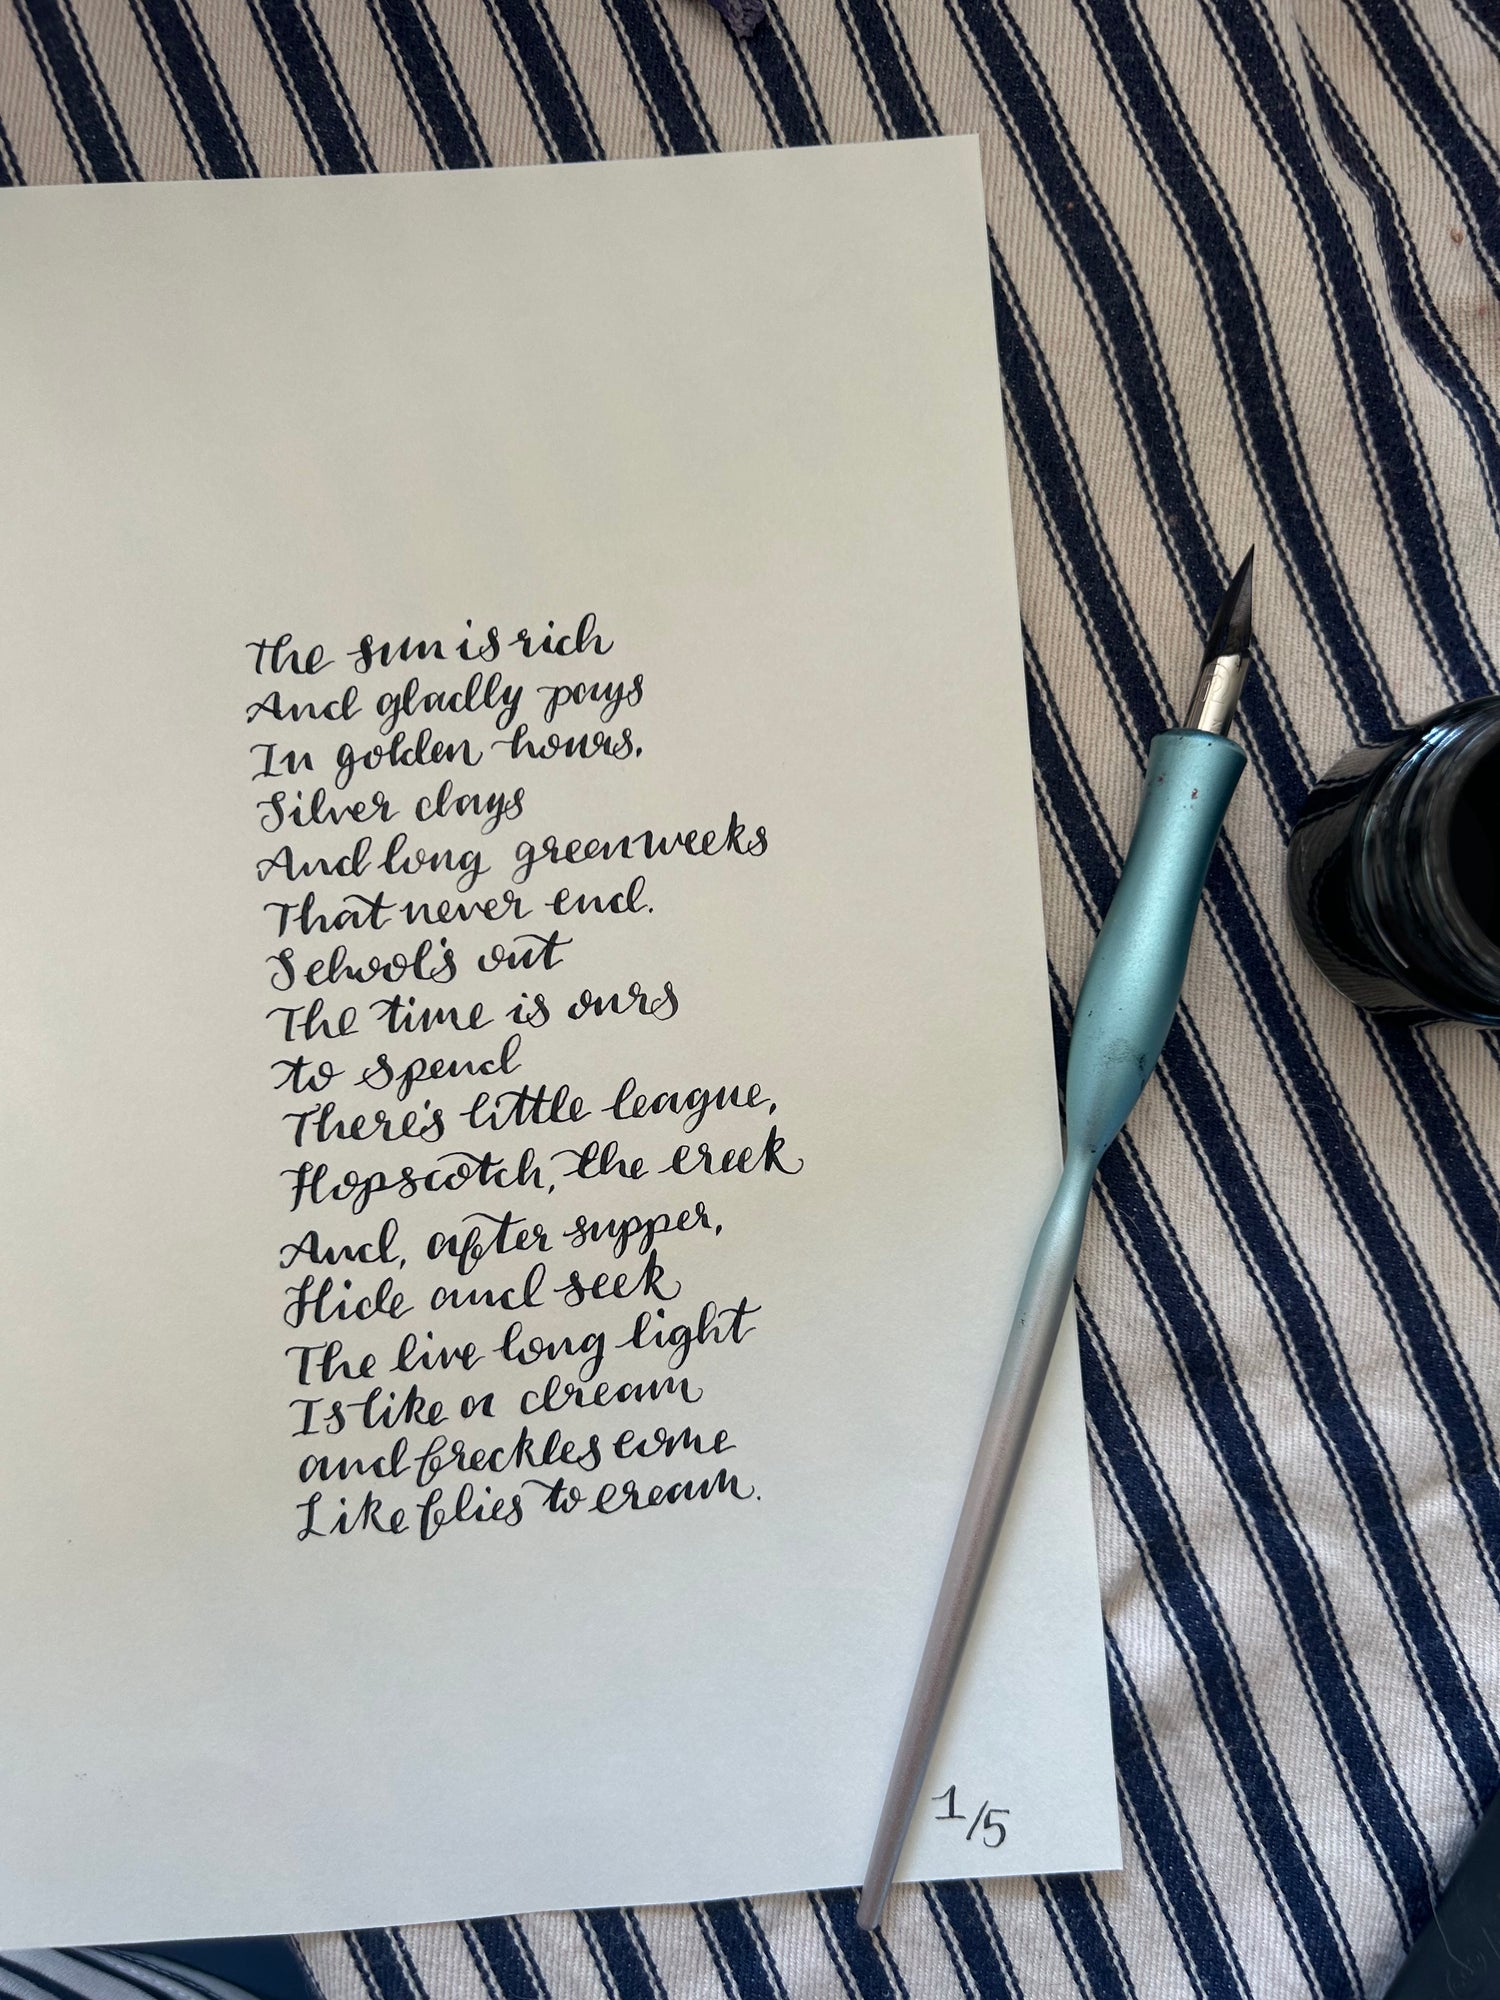 The sun is rich
And gladly pays
In golden hours,
Silver days
And long green weeks
That never end.
School's out
The time is ours
to spend
There's little league,
Hopscotch, the creek
And, after supper,
Hide and seek
The live long light
Is like a dream
and freckles come
Like flies to cream.
1/5